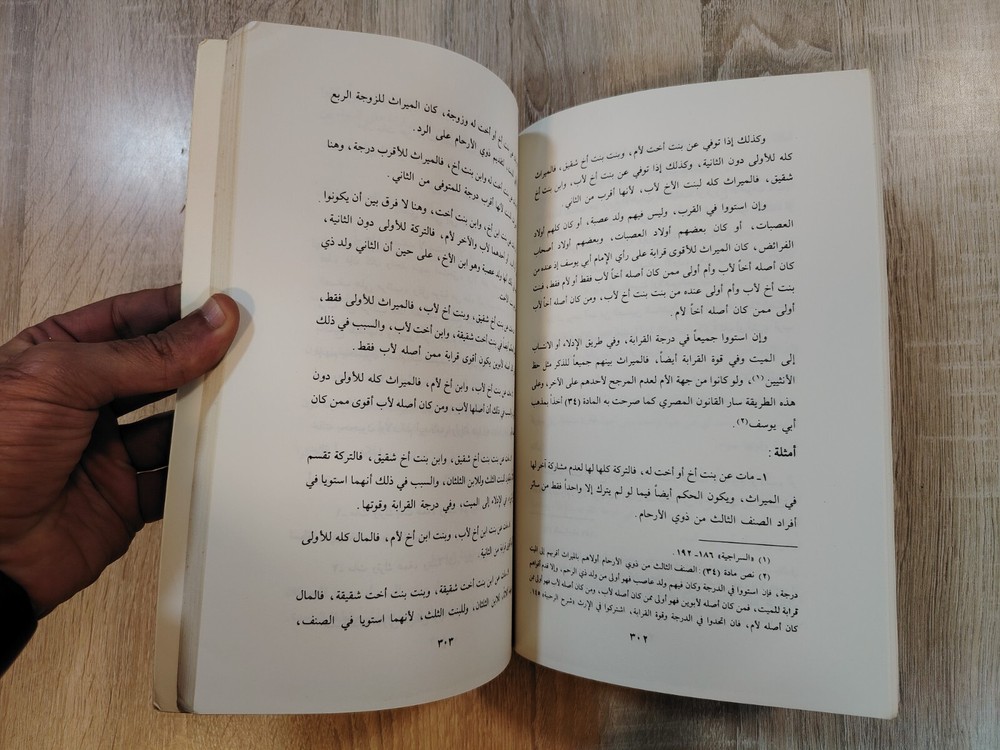 وكذلك إذا توفي عن بنت أخت لأم، وبنت بنت أخ شقيق، فالميراث
كله للأولى دون الثانية، وكذلك إذا توفي عن بنت أخ لأب، وابن بنت أخ
شقيق، فالميراث كله لبنت الأخ لأب، لأنها أقرب من الثاني.
وإن استووا في القرب، وليس فيهم ولد عصبة، أو كان كلهم أولاد
العصبات، أو كان بعضهم أولاد العصبات، وبعضهم أولاد أصحاب
الفرائض، كان الميراث للأقوى قرابة على رأي الإمام أبي يوسف إذ عنده من
كان أصله أخاً لأب وأم أولى ممن كان أصله أخاً لأب فقط أو لأم فقط، فبنت
بنت أخ لأب وأم أولى عنده من بنت بنت أخ لأب، ومن كان أصله أخاً لأب
أولى ممن كان أصله أخاً لأم.
وإن استووا جميعاً في درجة القرابة، وفي طريق الإدلاء أو الانتساب
إلى الميت وفي قوة القرابة أيضاً، فالميراث بينهم جميعاً للذكر مثل حظ
الأنثيين(١)، ولو كانوا من جهة الأم لعدم المرجح لأحدهم على الآخر، وعلى
هذه الطريقة سار القانون المصري كما صرحت به المادة (٣٤) أخذاً بمذهب
أبي يوسف(٢).
أمثلة :
١ـ مات عن بنت أخ أو أخت له، فالتركة كلها لها لعدم مشاركة آخر لها
في الميراث، ويكون الحكم أيضاً فيما لو لم يترك إلا واحداً فقط من سائر
أفراد الصنف الثالث من ذوي الأرحام.
(١) «السراجية» ١٨٦ـ ١٩٢.
(٢) نص مادة (٣٤) الصنف الثالث من ذوي الأرحام أولاهم بالميراث أقربهم إلى الميت
درجة، فإن استووا في الدرجة وكان فيهم ولد عاصب فهو أولى من ولد ذي الرحم، وإلا قدم أقواهم
قرابة للميت، فمن كان أصله لأبوين فهو أولى ممن كان أصله لأب، ومن كان أصله لأب فهو أولى ممن
كان أصله لأم، فإن اتحدوا في الدرجة وقوة القرابة، اشتركوا في الإرث «شرح الرحبية»
٣٠٢
بنت أخ أو أخت له وزوجة، كان الميراث للزوجة الربع
ذوي الأرحام على الرد.
له وابن بنت أخ، فالميراث للأقرب درجة، وهنا
لأنها أقرب درجة للمتوفى من الثاني.
بنت ابن أخ، وابن بنت أخت، وهنا لا فرق بين أن يكونوا
أحدهما لأب والآخر لأم، فالتركة للأولى دون الثانية،
ولد عصبة وهو ابن الأخ، على حين أن الثاني ولد ذي
عن بنت أخ شقيق، وبنت أخ لأب، فالميراث للأولى فقط،
بنت أخت شقيقة، وابن أخت لأب، والسبب في ذلك
يكون أقوى قرابة ممن أصله لأب فقط.
عن بنت أخ لأب، وابن أخ لأم، فالميراث كله للأولى دون
في ذلك أن أصلها لأب، ومن كان أصله لأب أقوى ممن كان
عن بنت بنت أخ شقيق، وابن بنت أخ شقيق، فالتركة تقسم
الثلث وللابن الثلثان، والسبب في ذلك أنهما استويا في
الإدلاء إلى الميت، وفي درجة القرابة وقوتها.
عن بنت ابن أخ لأب، وبنت ابن أخ لأم، فالمال كله للأولى
من الثانية.
عن ابن بنت أخت شقيقة، وبنت بنت أخت شقيقة، فالمال
للابن الثلثان، وللبنت الثلث، لأنهما استويا في الصنف،
٣٠٣